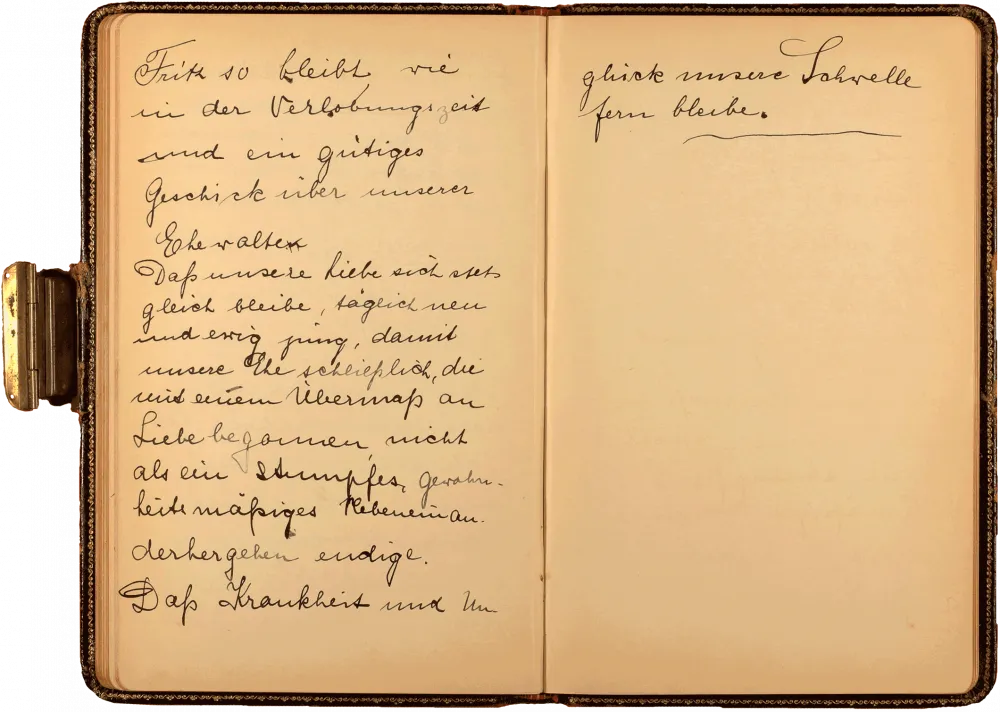 Fritz so bleibt wie
in der Verlobungszeit
und ein gütiges
Geschick über unserer
Ehe walten
Daß unsere Liebe sich stets
gleich bleibe, täglich neu
und ewig jung, damit
unsere Ehe schließlich, die
mit einem Übermaß an
Liebe begonnen, nicht
als ein stumpfes, gewohn-
heitsmäßiges Nebeneinan-
derhergehen endige.
Daß Krankheit und Un-
glück unsere Schwelle
fern bleibe.